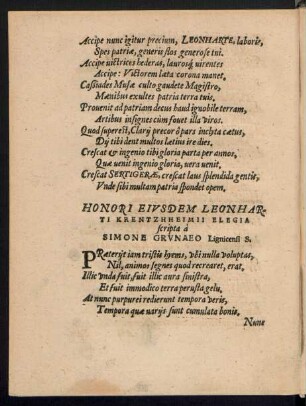 Accipe nunc igitur precium, LEONHARTE, laboris,
Spes patriæ, generis flos generose tui.
Accipe victrices hederas, laurosq́ virentes
Accipe: Victorem læta corona manet,
Castiades Musæ culto gaudete Magistro,
Manibus exultes patria terra tuis,
Provenit ad patriam decus haud ignobile terram,
Artibus insignes cùm fovet illa viros.
Quod superest, Clarij precor ô pars inclyta cætus,
Dij tibi dent multos lætius ire dies,
Crescat & ingenio tibi gloria parta per annos,
Quæ venit ingenio gloria, vera venit,
Crescat SERTIGERÆ, crescat laus splendida gentis,
Vnde sibi multam patria spondet opem,
HONORI EIVSDEM LEONHAR-
TI KRENTZHHEIMII ELEGIA
scripta à
SIMONE GRVNAEO Lignicensi S.
PRæterijt iam tristis hyems, vbi nulla voluptas,
Nil, animos segnes quod recrearet, erat,
Illic vnda fuit, fuit illic aura sinistra,
Et fuit immodico terra perusta gelu,
At nunc purpurei redierunt tempora veris,
Tempora quæ varijs sunt cumulata bonis,
Nunc